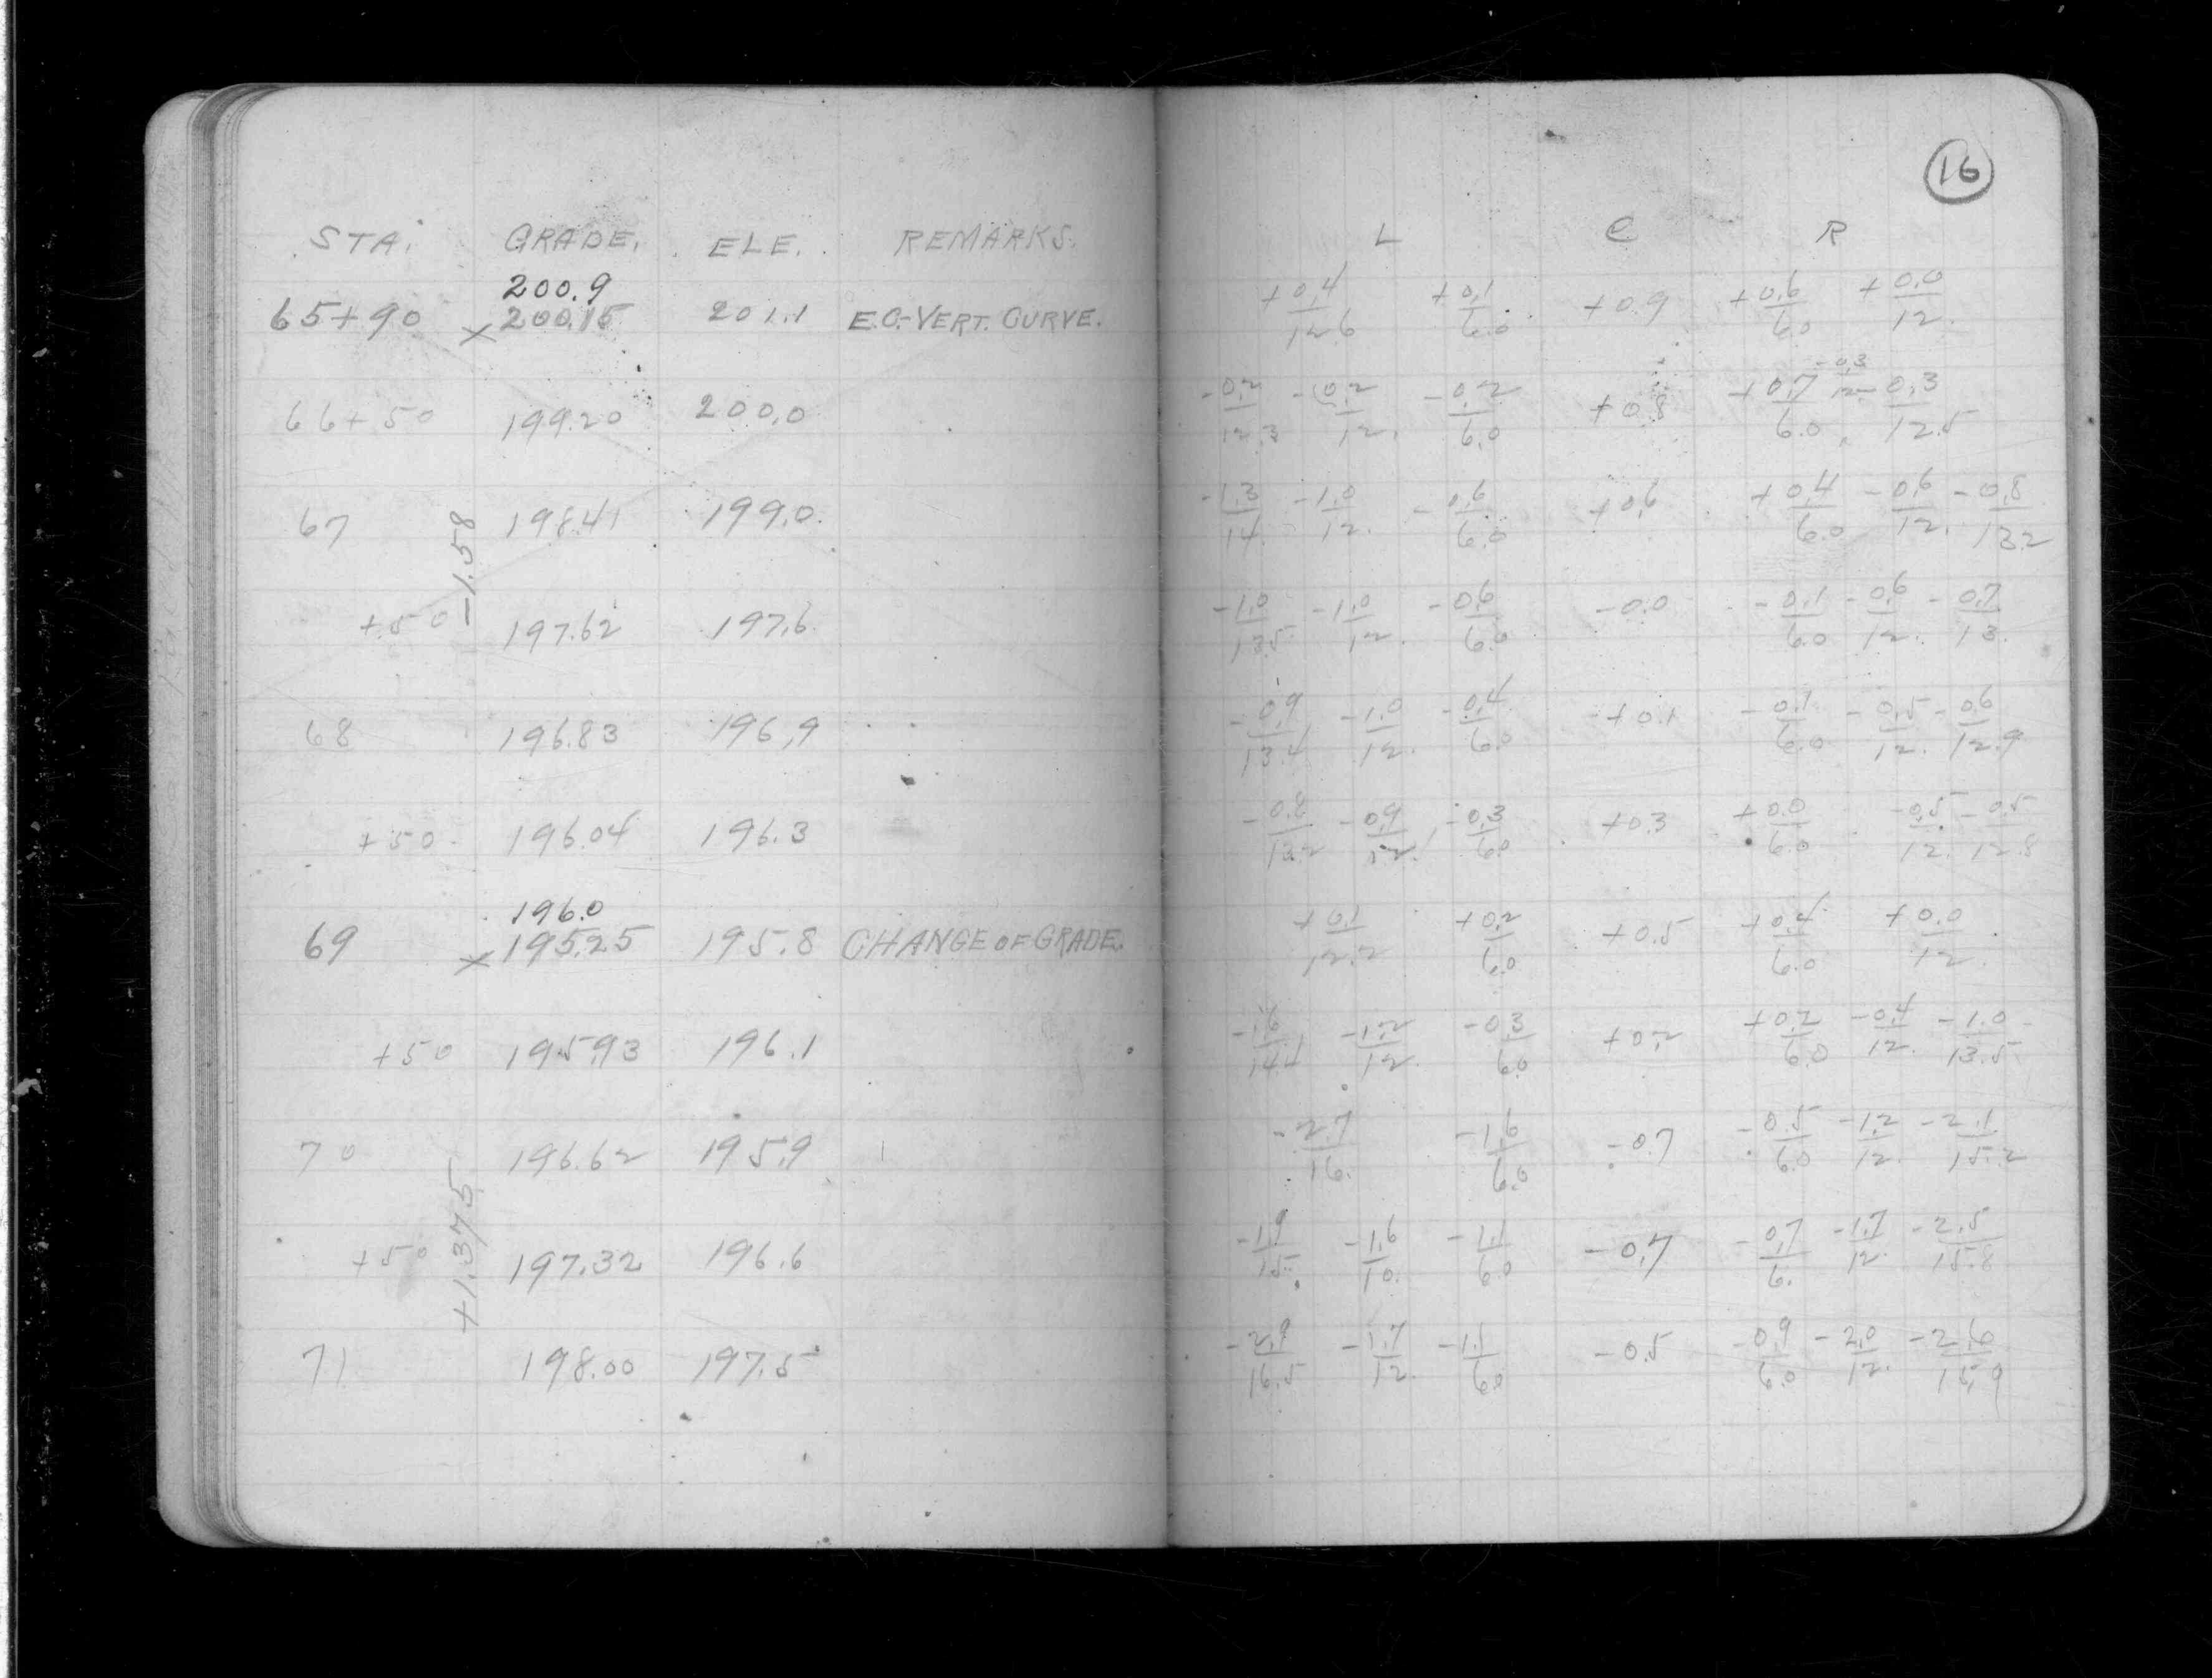 16
STA. GRADE. ELE. REMARKS. L C R
200.9
65+90 x 200.15 201.1 E.C.-VERT. CURVE. +0.4/12.6 +0.1/6.0 +0.9 +0.6/6.0 +0.0/12.
66+50 199.20 200.0 -0.2/12.3 -0.2/12. -0.2/6.0 +0.8 +0.7/6.0 -0.3/12 -0.3/12.5
67 198.41 199.0 -1.3/14. -1.0/12. -0.6/6.0 +0.6 +0.4/6.0 -0.6/12. -0.8/13.2
-1.58
+50 197.62 197.6 -1.0/13.5 -1.0/12. -0.6/6.0 -0.0 -0.1/6.0 -0.6/12. -0.7/13.
68 196.83 196.9 -0.9/13.4 -1.0/12. -0.4/6.0 +0.1 -0.1/6.0 -0.5/12. -0.6/12.9
+50 196.04 196.3 -0.8/13.2 -0.9/12. -0.3/6.0 +0.3 +0.0/6.0 -0.5/12. -0.5/12.8
196.0
69 x 195.25 195.8 CHANGE OF GRADE. +0.1/12.2 +0.2/6.0 +0.5 +0.4/6.0 +0.0/12.
+50 195.93 196.1 -1.6/14.4 -1.2/12. -0.3/6.0 +0.2 +0.2/6.0 -0.4/12. -1.0/13.5
70 196.62 195.9 -2.7/16. -1.6/6.0 -0.7 -0.5/6.0 -1.2/12. -2.1/15.2
+1.375
+50 197.32 196.6 -1.9/15. -1.6/10. -1.1/6.0 -0.7 -0.7/6. -1.7/12. -2.5/15.8
71 198.00 197.5 -2.9/16.5 -1.7/12. -1.1/6.0 -0.5 -0.9/6.0 -2.0/12. -2.6/15.9